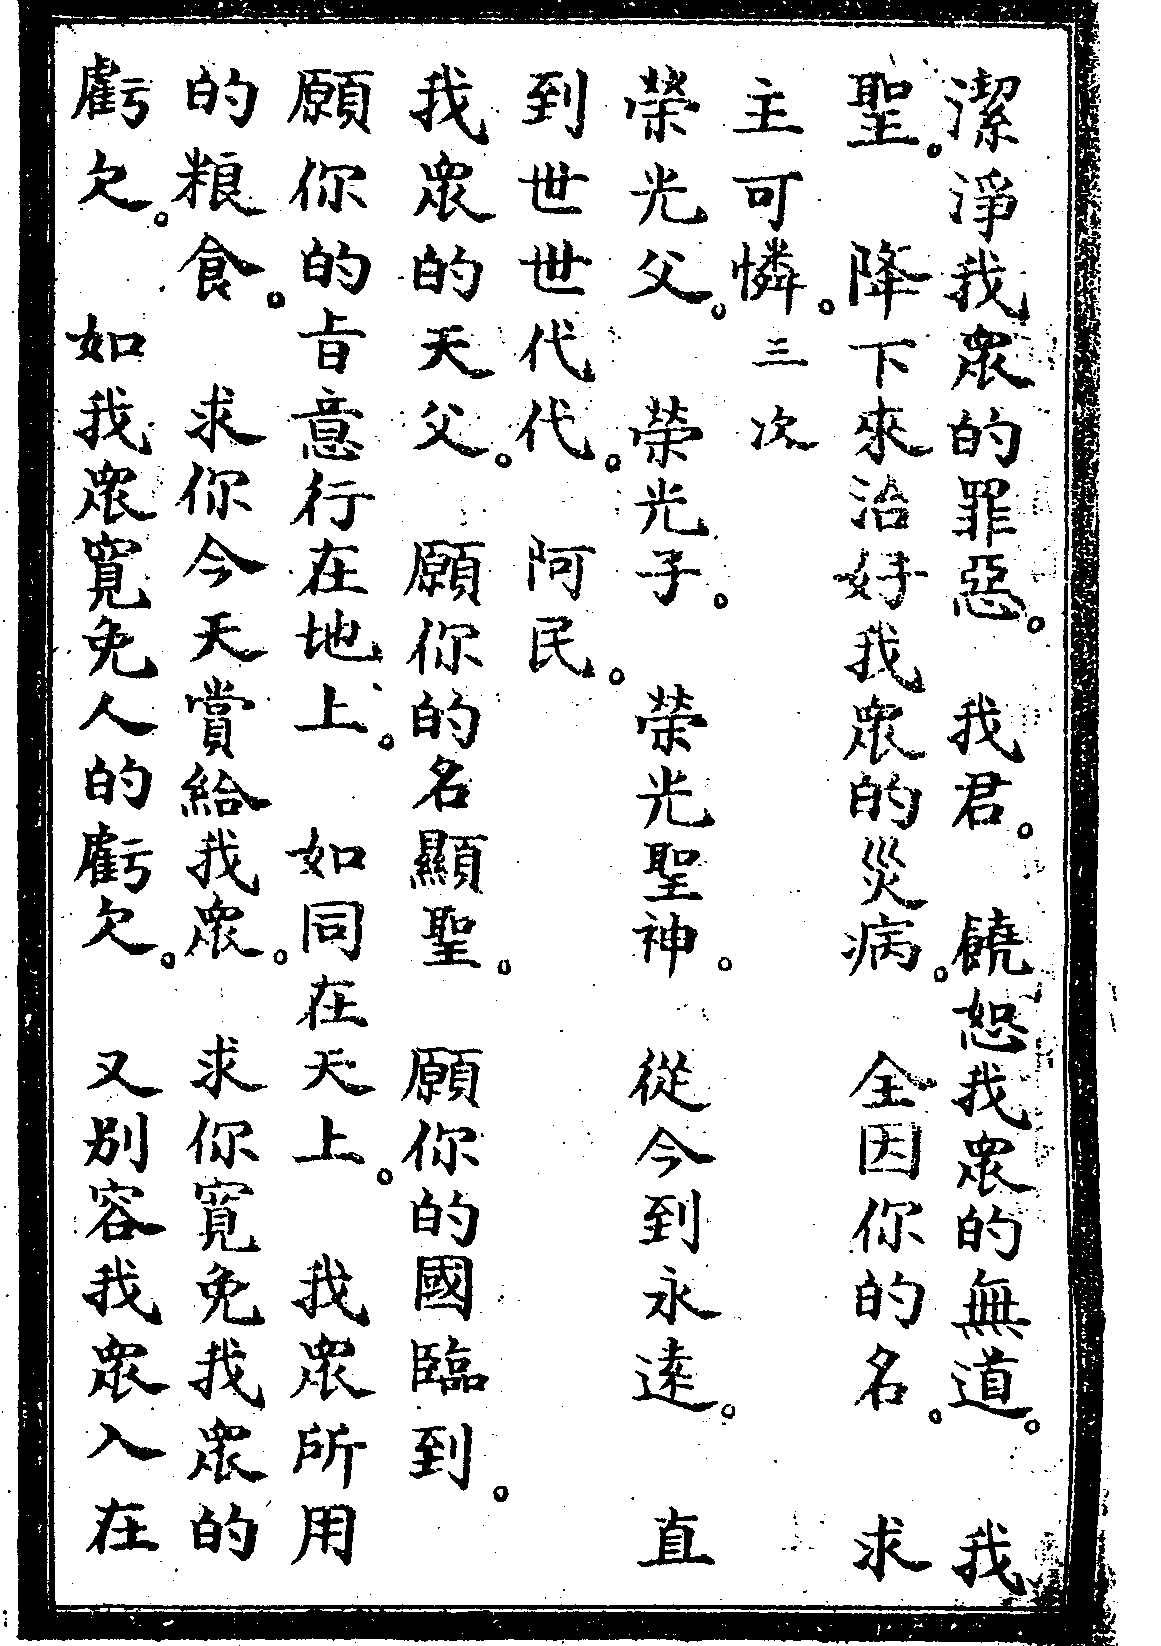 潔淨我衆的罪惡。我君。饒恕我衆的無道。我
聖。降下來治好我衆的災病。全因你的名。求
主可憐。三次
榮光父。榮光子。榮光聖神。從今到永遠。直
到世世代代。阿民。
我衆的天父。願你的名顯聖。願你的國臨到。
願你的旨意行在地上。如同在天上。我衆所用
的粮食。求你今天賞給我衆。求你寬免我衆的
虧欠。如我衆寬免人的虧欠。又別容我衆入在